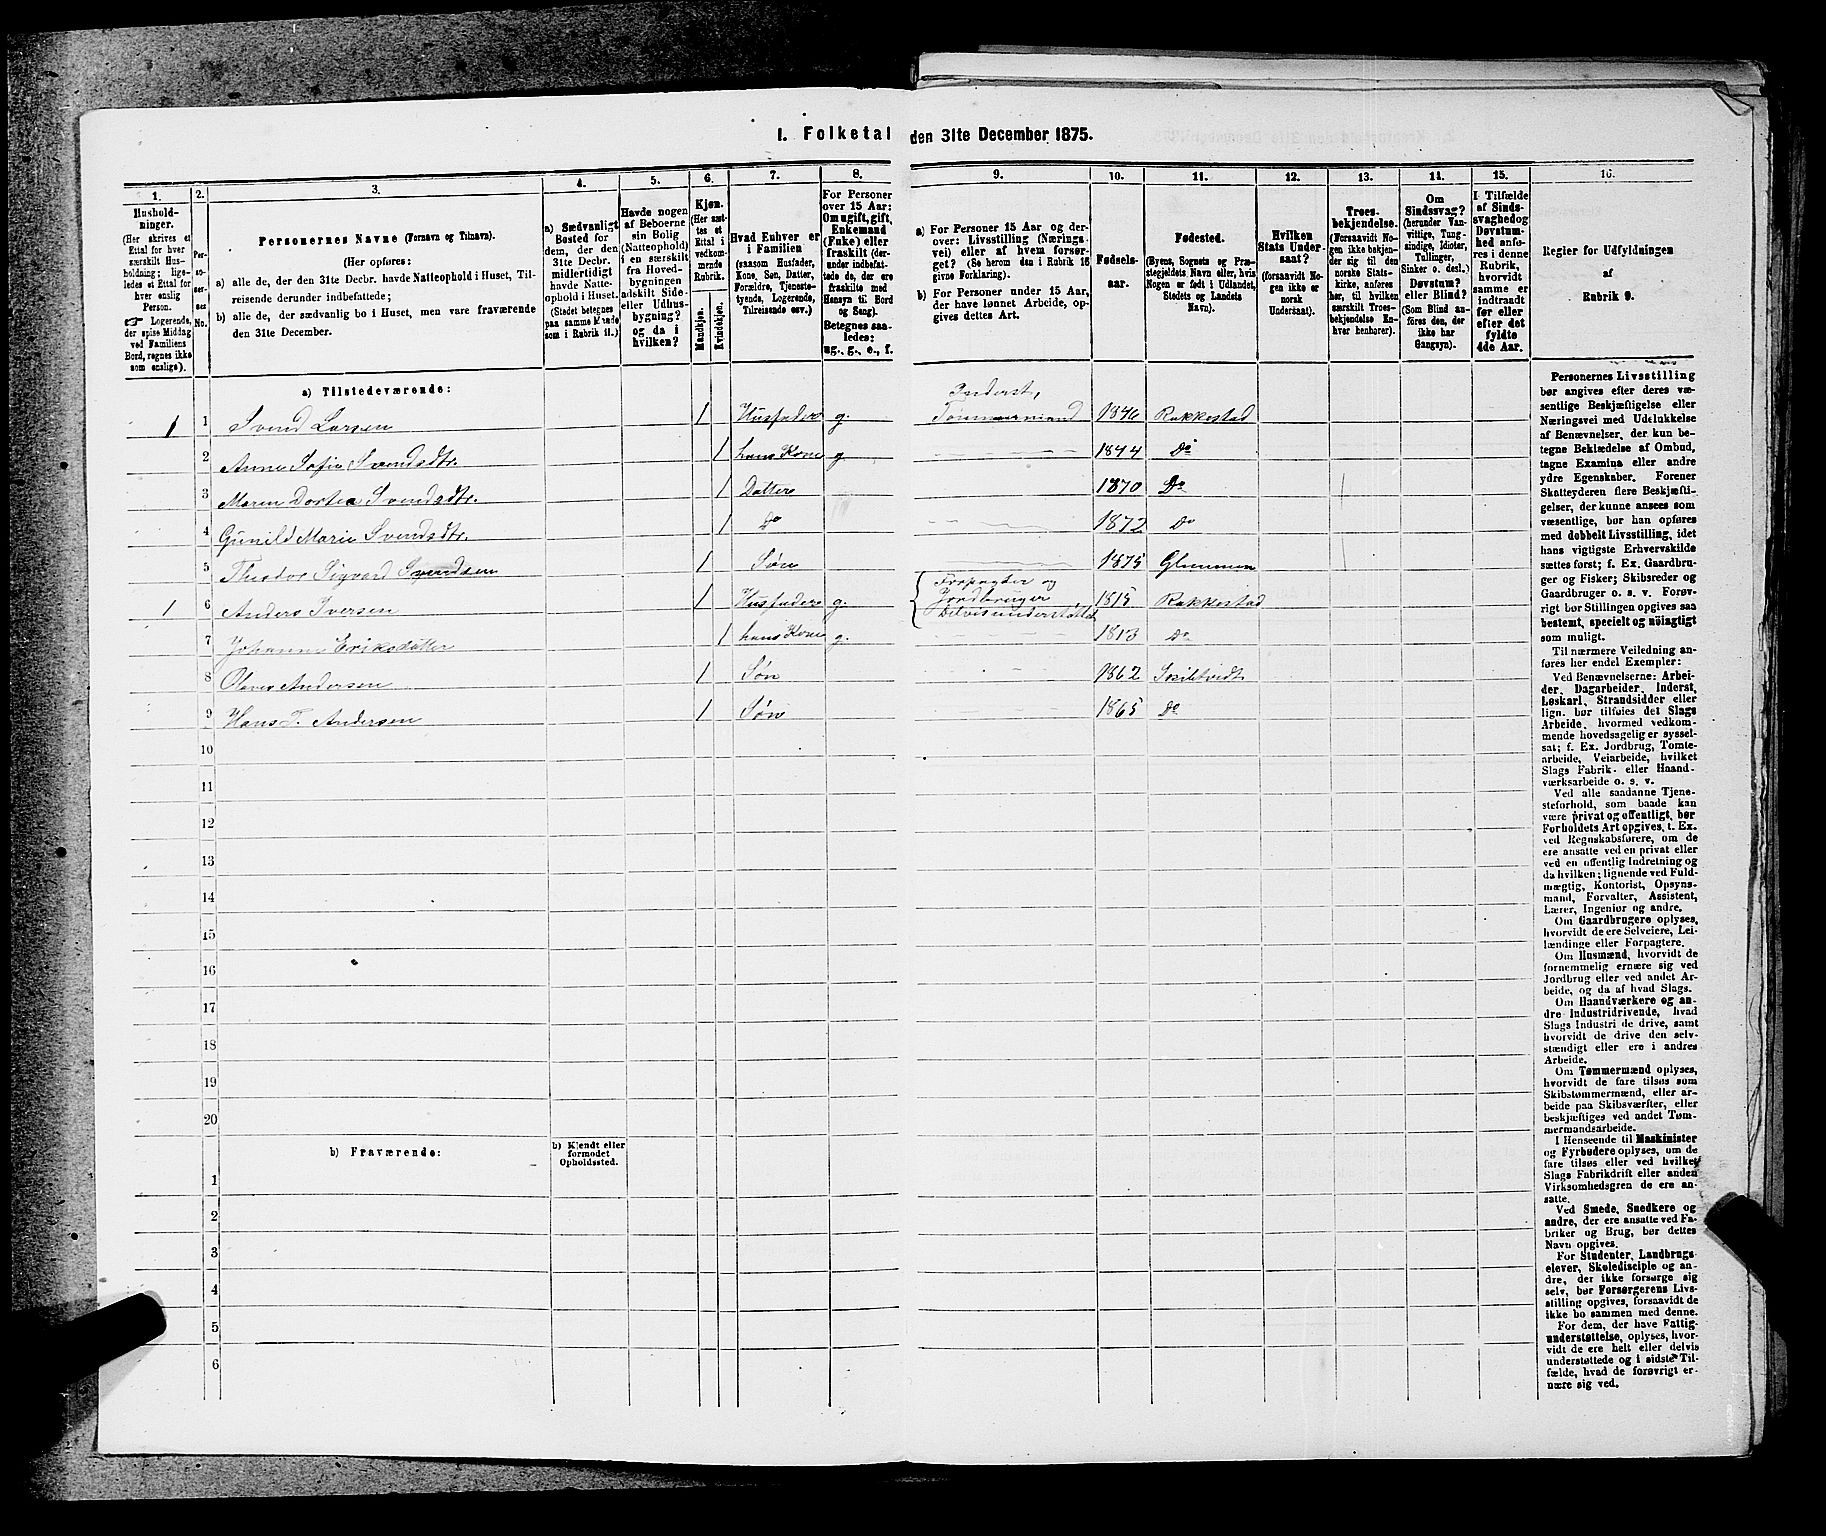 I. Folketal den 31te December 1875.
1. 2. 3. 4. 5. 6. 7. 8. 9. 10. 11. 12. 13. 14. 15. 16.
Hushold-
ninger.
(Her skrives et
Ettal for hver
særskilt Hus-
holdning; lige-
ledes et Ettal for
hver enslig
Person.
☞ Logerende,
der spise Middag
ved Familiens
Bord, regnes ikke
som enslige).
Per-
so-
ner-
nes
No.
Personernes Navne (Fornavn og Tilnavn).
(Her opføres:
a) alle de, der den 31te Decbr. havde Natteophold i Huset, Til-
reisende derunder indbefattede;
b) alle de, der sædvanlig bo i Huset, men vare fraværende
den 31te December.
a) Sædvanligt
Bosted for
dem, der den
31te Decbr.
midlertidigt
havde Natte-
ophold i Huset.
(Stedet betegnes
paa samme Maade
som i Rubrik 11.)
Havde nogen
af Beboerne
sin Bolig
(Natteophold)
i en særskilt
fra Hoved-
bygningen
adskilt Side-
eller Udhus-
bygning?
og da i
hvilken?
Kjøn.
(Her sæt-
tes et
Ettal i
vedkom-
mende
Rubrik.
Mandkjøn.
Kvindekjøn.
Hvad Enhver er
i Familien
(saasom Husfader,
Kone, Søn, Datter,
Forældre, Tjeneste-
tyende, Logerende,
Tilreisende osv.)
For Personer
over 15 Aar:
Om ugift, gift,
Enkemand
(Enke) eller
fraskilt (der-
under indbefat-
tede de, der ere
fraskilte med
Hensyn til Bord
og Seng).
Betegnes saa-
ledes:
ug., g., e., f.
a) For Personer 15 Aar og der-
over: Livsstilling (Nærings-
vei) eller af hvem forsør-
get? (Se herom den i Rubrik 16
givne Forklaring).
b) For Personer under 15 Aar,
der have lønnet Arbeide, op-
gives dettes Art.
Fødsels-
aar.
Fødested.
(Byens, Sognets og Præ-
stegjeldets Navn eller, hvis
Nogen er født i Udlandet,
Stedets og Landets
Navn).
Hvilken
Stats Under-
saat?
(forsaavidt No-
gen ikke er
norsk
Undersaat).
Troes-
bekjendelse.
(Forsaavidt No-
gen ikke bekjen-
der sig til den
norske Stats-
kirke, anføres
her, til hvilken
særskilt Troes-
bekjendelse En-
hver henhører).
Om
Sindssvag?
(herunder Van-
vittige, Tung-
sindige, Idioter,
Tullinger,
Sinker o. desl.)
Døvstum?
eller Blind?
(Som Blind an-
føres den, der
ikke har
Gangsyn).
I Tilfælde
af Sinds-
svaghed og
Døvstum-
hed anfø-
res i denne
Rubrik,
hvorvidt
samme er
indtraadt
før eller
efter det
fyldte
4de Aar.
Regler for Udfyldningen
af
Rubrik 9.
a) Tilstedeværende:
1 1 Svend Larsen 1 Husfader g. Inderst, Tømmermand 1846 Rakkestad
2 Anne Sofie Svendsdtr. 1 hans Kone g. 1844 Do
3 Maren Dortea Svendsdtr. 1 Datter 1870 Do
4 Gunild Marie Svendsdtr. 1 Do 1872 Do
5 Theodor Sigvard Svendsen 1 Søn 1875 Glemmen
1 6 Anders Iversen 1 Husfader g. Forpagter og Jordbruger Delvis understøttet 1815 Rakkestad
7 Johanne Eriksdatter 1 hans Kone g. 1813 Do
8 Olaves Andersen 1 Søn 1862 Skibtvedt
9 Hans T. Andersen 1 Søn 1865 Do
10
11
12
13
14
15
16
17
18
19
20
b) Fraværende:
b) Kjendt eller
formodet
Opholdssted.
1
2
3
4
5
6
Personernes Livsstilling
bør angives efter deres væ-
sentlige Beskjæftigelse eller
Næringsvei med Udelukkelse
af Benævnelser, der kun be-
tegne Beklædelse af Ombud,
tagne Examina eller andre
ydre Egenskaber. Forener
Skatteyderen flere Beskjæfti-
gelser, der kunne ansees som
væsentlige, bør han opføres
med dobbelt Livsstilling, idet
hans vigtigste Erhvervskilde
sættes først; f. Ex. Gaardbru-
ger og Fisker; Skibsreder og
Gaardbruger o. s. v. Forøv-
rigt bør Stillingen opgives saa
bestemt, specielt og nøiagtigt
som muligt.
Til nærmere Veiledning an-
føres her endel Exempler:
Ved Benævnelserne: Arbei-
der, Dagarbeider, Inderst,
Løskarl, Strandsidder eller
lign. bør tilføies det Slags
Arbeide, hvormed vedkom-
mende hovedsagelig er syssel-
sat; f. Ex. Jordbrug, Tomte-
arbeide, Veiarbeide, hvilket
Slags Fabrik- eller Haand-
værksarbeide o. s. v.
Ved alle saadanne Tjene-
steforhold, som baade kan
være privat og offentligt, bør
Forholdets Art opgives, t. Ex.
ved Regnskabsførere, om de
ere ansatte ved en privat eller
ved en offentlig Indretning og
da hvilken; lignende ved Fuld-
mægtig, Kontorist, Opsyns-
mand, Forvalter, Assistent,
Lærer, Ingeniør og andre.
Om Gaardbrugere oplyses,
hvorvidt de ere Selveiere, Lei-
lændinge eller Forpagtere.
Om Husmænd, hvorvidt de
fornemmelig ernære sig ved
Jordbrug eller ved andet Ar-
beide, og da af hvad Slags.
Om Haandværkere og an-
dre Industridrivende, hvad
Slags Industri de drive, samt
hvorvidt de drive den selv-
stændigt eller ere i andres
Arbeide.
Om Tømmermænd oplyses,
hvorvidt de fare tilsøs som
Skibstømmermænd, eller ar-
beide paa Skibsværfter, eller
beskjæftiges ved andet Tøm-
mermandsarbeide.
I Henseende til Maskinister
og Fyrbødere oplyses, om de
fare tilsøs eller ved hvilket
Slags Fabrikdrift eller anden
Virksomhedsgren de ere an-
satte.
Ved Smede, Snedkere og
andre, der ere ansatte ved Fa-
briker og Brug, bør dettes
Navn opgives.
For Studenter, Landbrugs-
elever, Skoledisciple og an-
dre, der ikke forsørge sig
selv, bør Forsørgerens Livs-
stilling opgives, forsaavidt de
ikke bo sammen med denne.
For dem, der have Fattig-
understøttelse, oplyses, hvor-
vidt de ere helt eller delvis
understøttede og i sidste Til-
fælde, hvad de forøvrigt er-
nære sig ved.